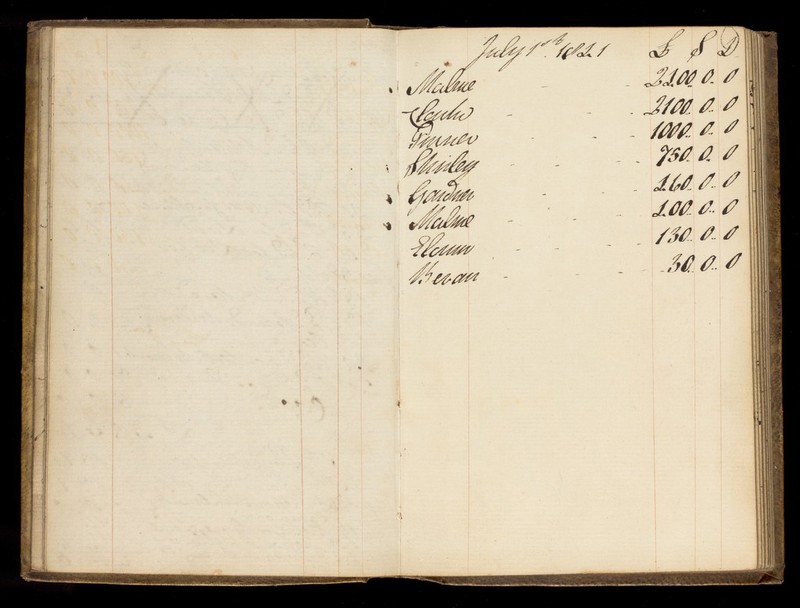 July 1st 1821 £ S D
Malme - - - 2200. 0. 0
- - - 2100. 0. 0
Finner - - 1000. 0. 0
Shirley - - - 750. 0. 0
Gardner - - 260. 0. 0
Malme - - - 200. 0. 0
- - - 130. 0. 0
Bevan - - - 30. 0. 0